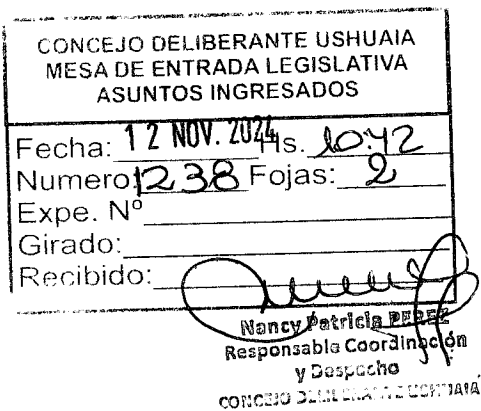 CONCEJO DELIBERANTE USHUAIA
MESA DE ENTRADA LEGISLATIVA
ASUNTOS INGRESADOS
Fecha: 12 NOV. 2024 Hs. 10:42
Numero: 1238 Fojas: 2
Expe. Nº
Girado:
Recibido:
Nancy Patricia PEREZ
Responsable Coordinación
y Despacho
CONCEJO DELIBERANTE USHUAIA